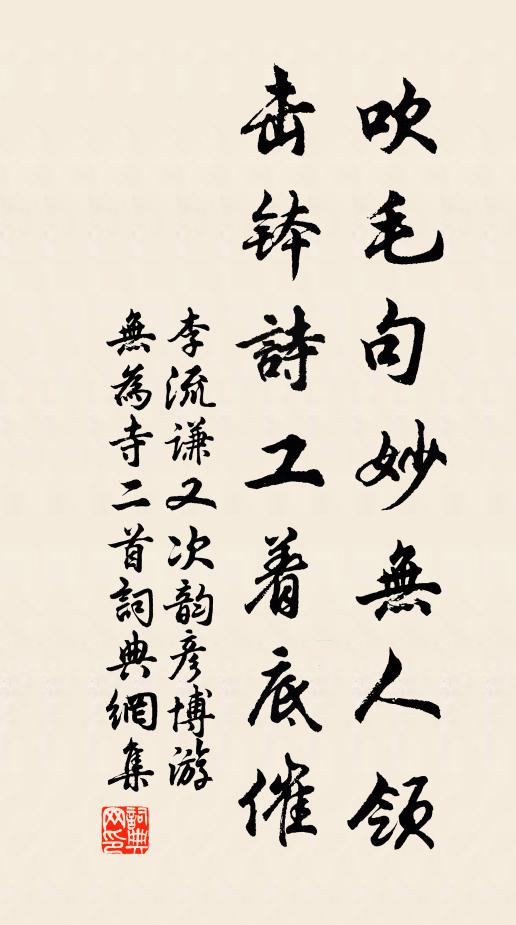 吹毛句妙無人領
击钵詩工着底催
李流謙又次韵彥博游
無為寺二首詞典網集
詞典网印